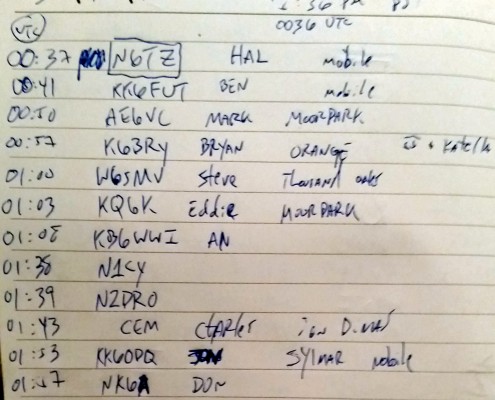 0036 UTC
UTC
00:37 N6TZ HAL mobile
00:41 KK6FUT BEN mobile
00:50 AE6VC MARK MOORPARK
00:57 K63RY BRYAN ORANGE
01:00 W6SMV Steve Thousand oaks
01:03 KQ6K Eddie MOORPARK
01:08 KB6WWI AN
01:38 N1CY
01:39 N2DRO
01:43 CEM Charles
01:53 KK6ODQ JON SYLMAR mobile
01:57 NK6A DON